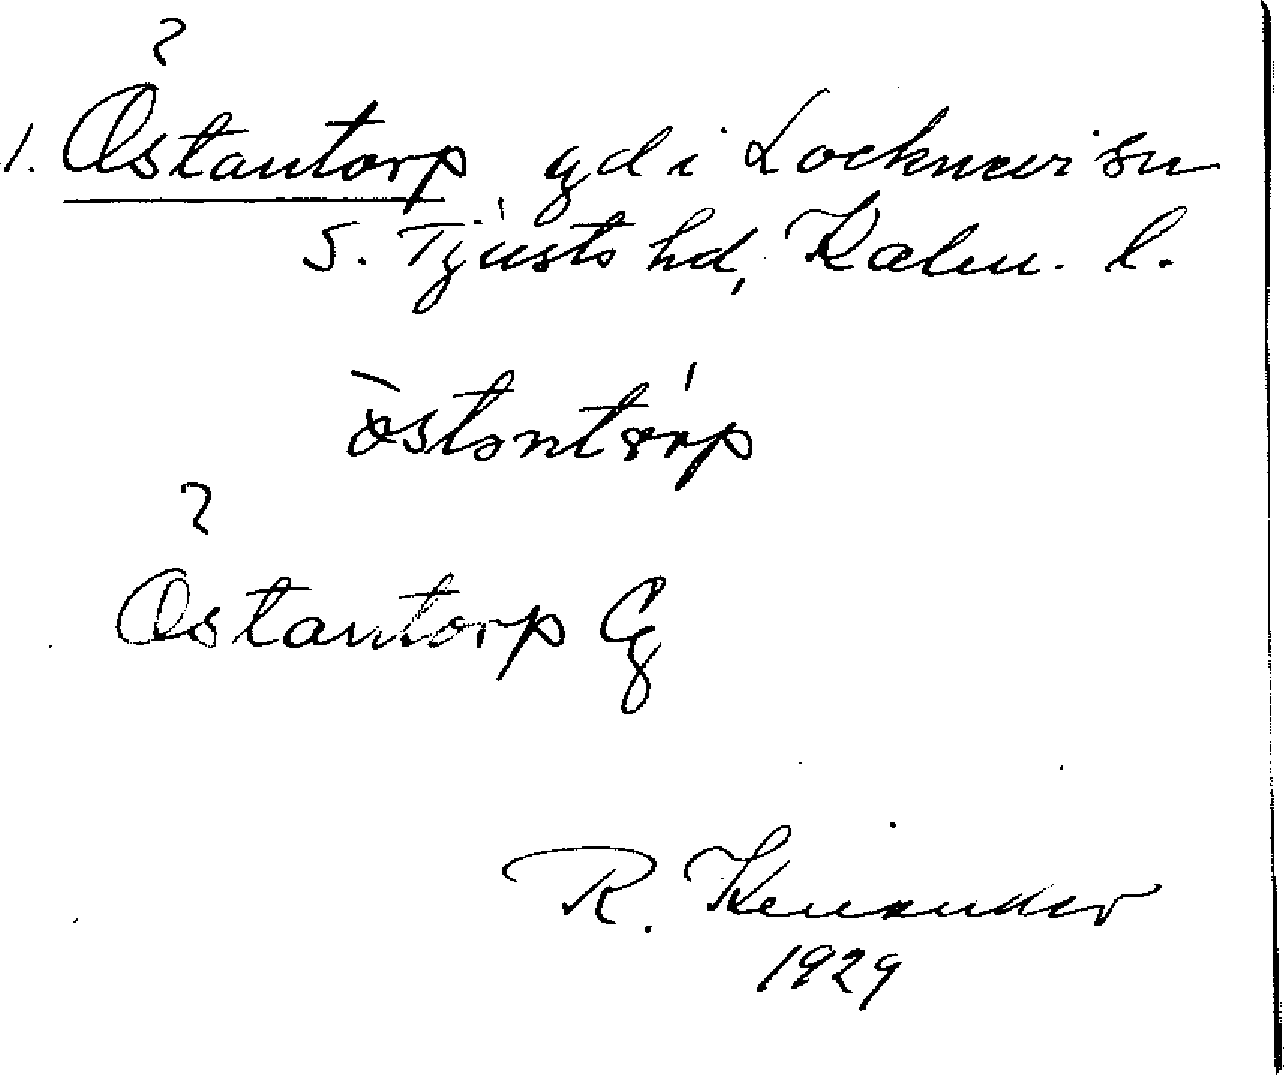 ?
1. Östantorp gd i Locknevi sn
S. Tjusts hd, Kalm. l.
östantörp
?
Östantorp Cg
R. Kenander
1929